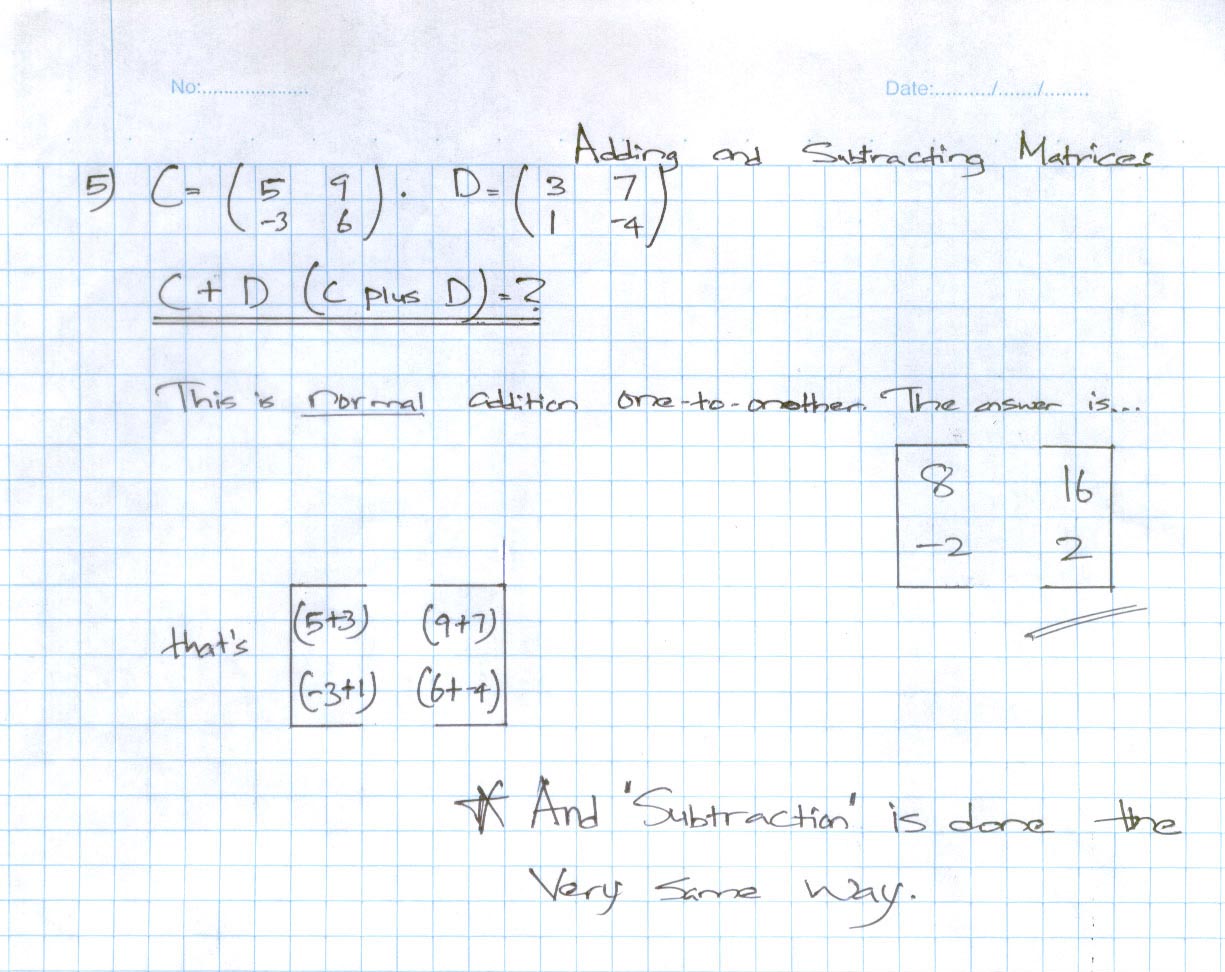 No:.................... Date:........../......./........
Adding and Subtracting Matrices
5) C= (5 9). D= (3 7)
-3 6 1 -4
C + D (C plus D) = ?
This is normal addition one-to-another. The answer is...
8 16
-2 2
that's (5+3) (9+7)
(-3+1) (6+-4)
* And 'Subtraction' is done the
Very same way.